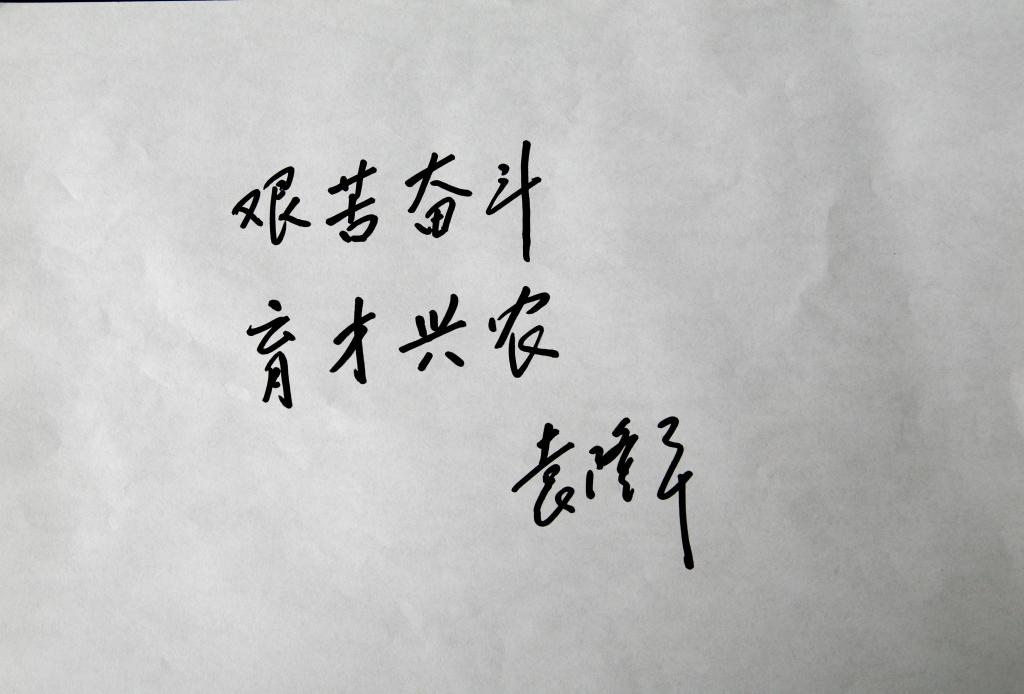 艰苦奋斗
育才兴农
袁隆平